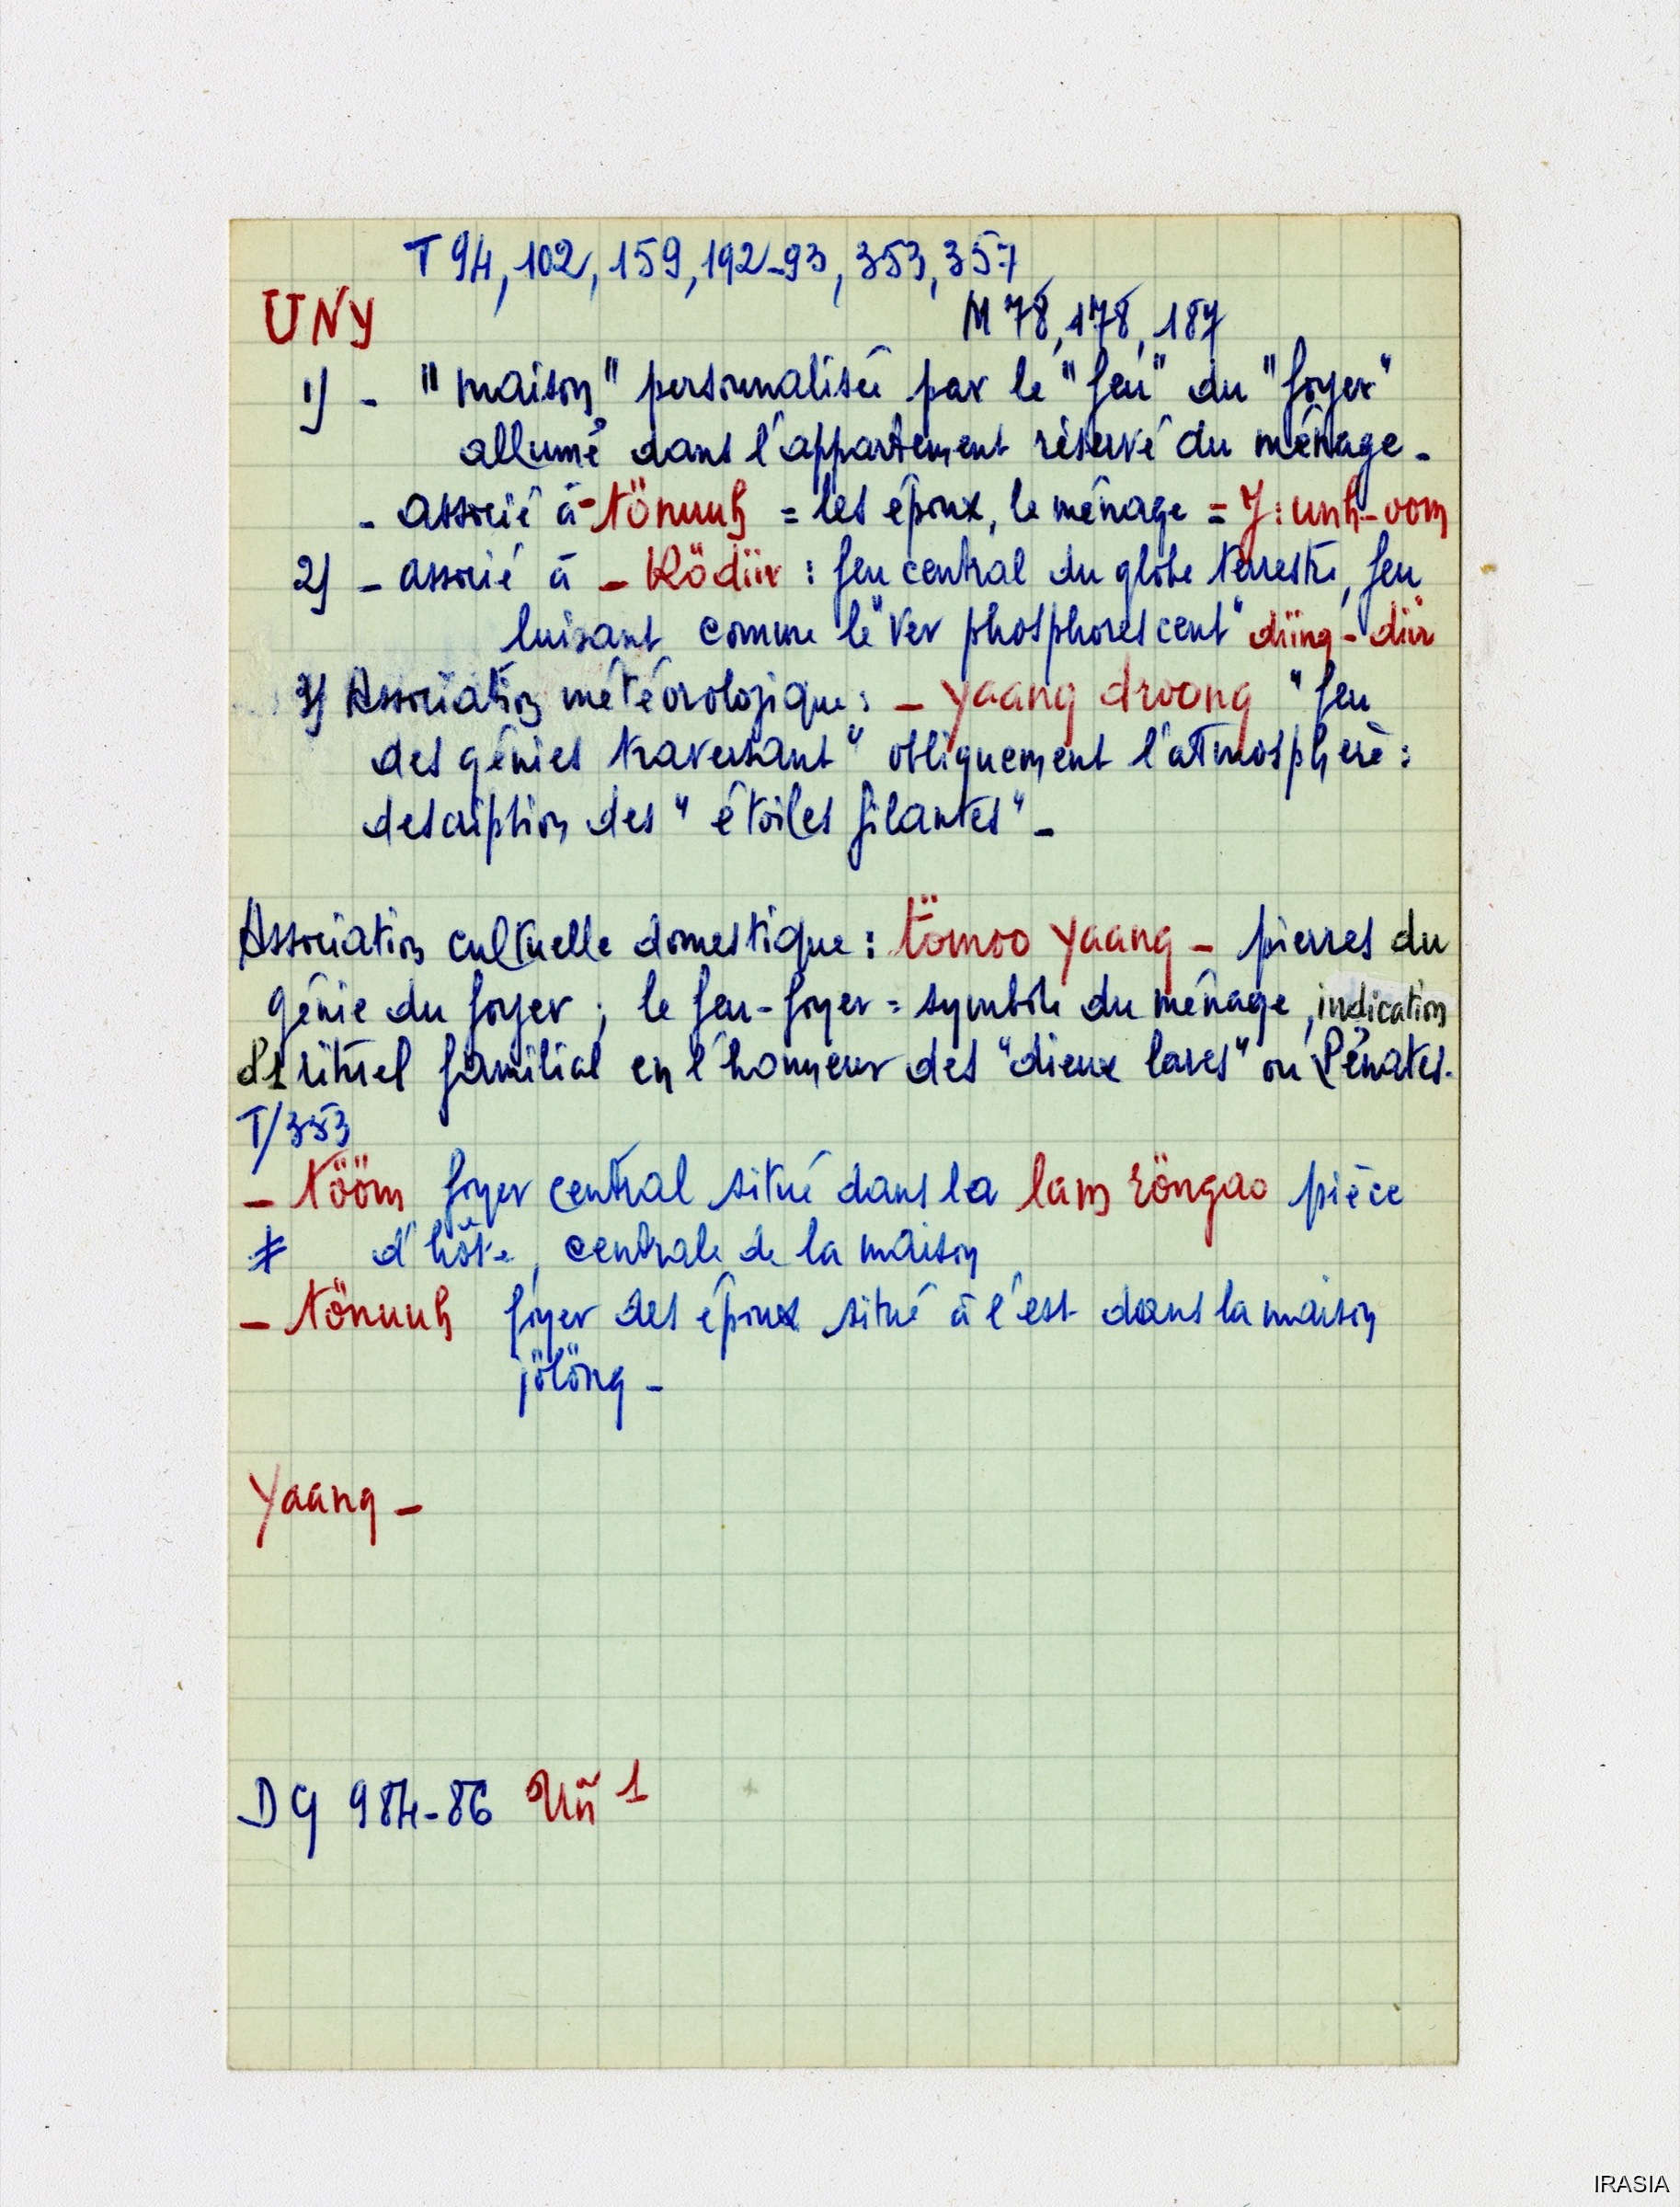 T 94, 102, 159, 192-93, 353, 357
UNY
M 78, 178, 187
1) - "maison" personnalisée par le "feu" du "foyer"
allumé dans l'appartement réservé du ménage -
- associé à - tönuuh = les époux, le ménage = J: unh-oom
2) - associé à - Ködiir : feu central du globe terrestre, feu
luisant comme le "ver phosphorescent" diing - diir
3) Association météorologique : - yaang droong "feu
des génies traversant" obliquement l'atmosphère :
description des "étoiles filantes" -
Association cultuelle domestique : tömoo yaang - pierres du
génie du foyer ; le feu-foyer = symbole du ménage, indication
de rituel familial en l'honneur des "dieux lares" ou Pénates.
T/353
- tööm foyer central situé dans la lam röngao pièce
≠ d'hôte, centrale de la maison
- tönuuh foyer des époux situé à l'est dans la maison
jölöng -
Yaang -
DG 984-86 Uñ 1
IRASIA